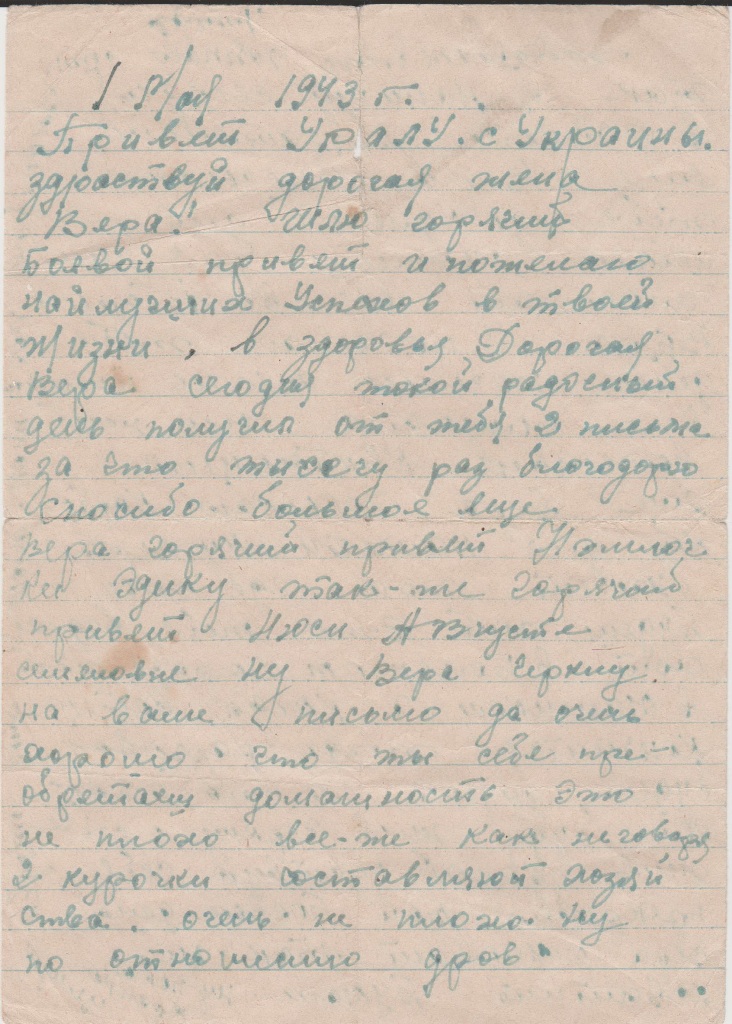 1 Мая 1943 г.
Привет Уралу. с Украины.
здраствуй дорогая жена
Вера! Шлю горячий
Боевой привет и пожелаю
наилучших Успехов в твоей
Жизни, в здоровья, Дорогая
Вера сегодня такой радосный
день получил от тебя 2 письма
за что тысечу раз благодарю
Спосибо большое еще
Вера горячий привет
ке Эдику так-же горячий
привет Нюси Августе
семеновне ну Вера черкну
на ваше письмо да очень
хорошо что ты себе при-
обретаеш домашность Это
не плохо все-же как не говоря
2 курочки составляют хозяй
ства. очень не плохо. Ну
по отношению дров